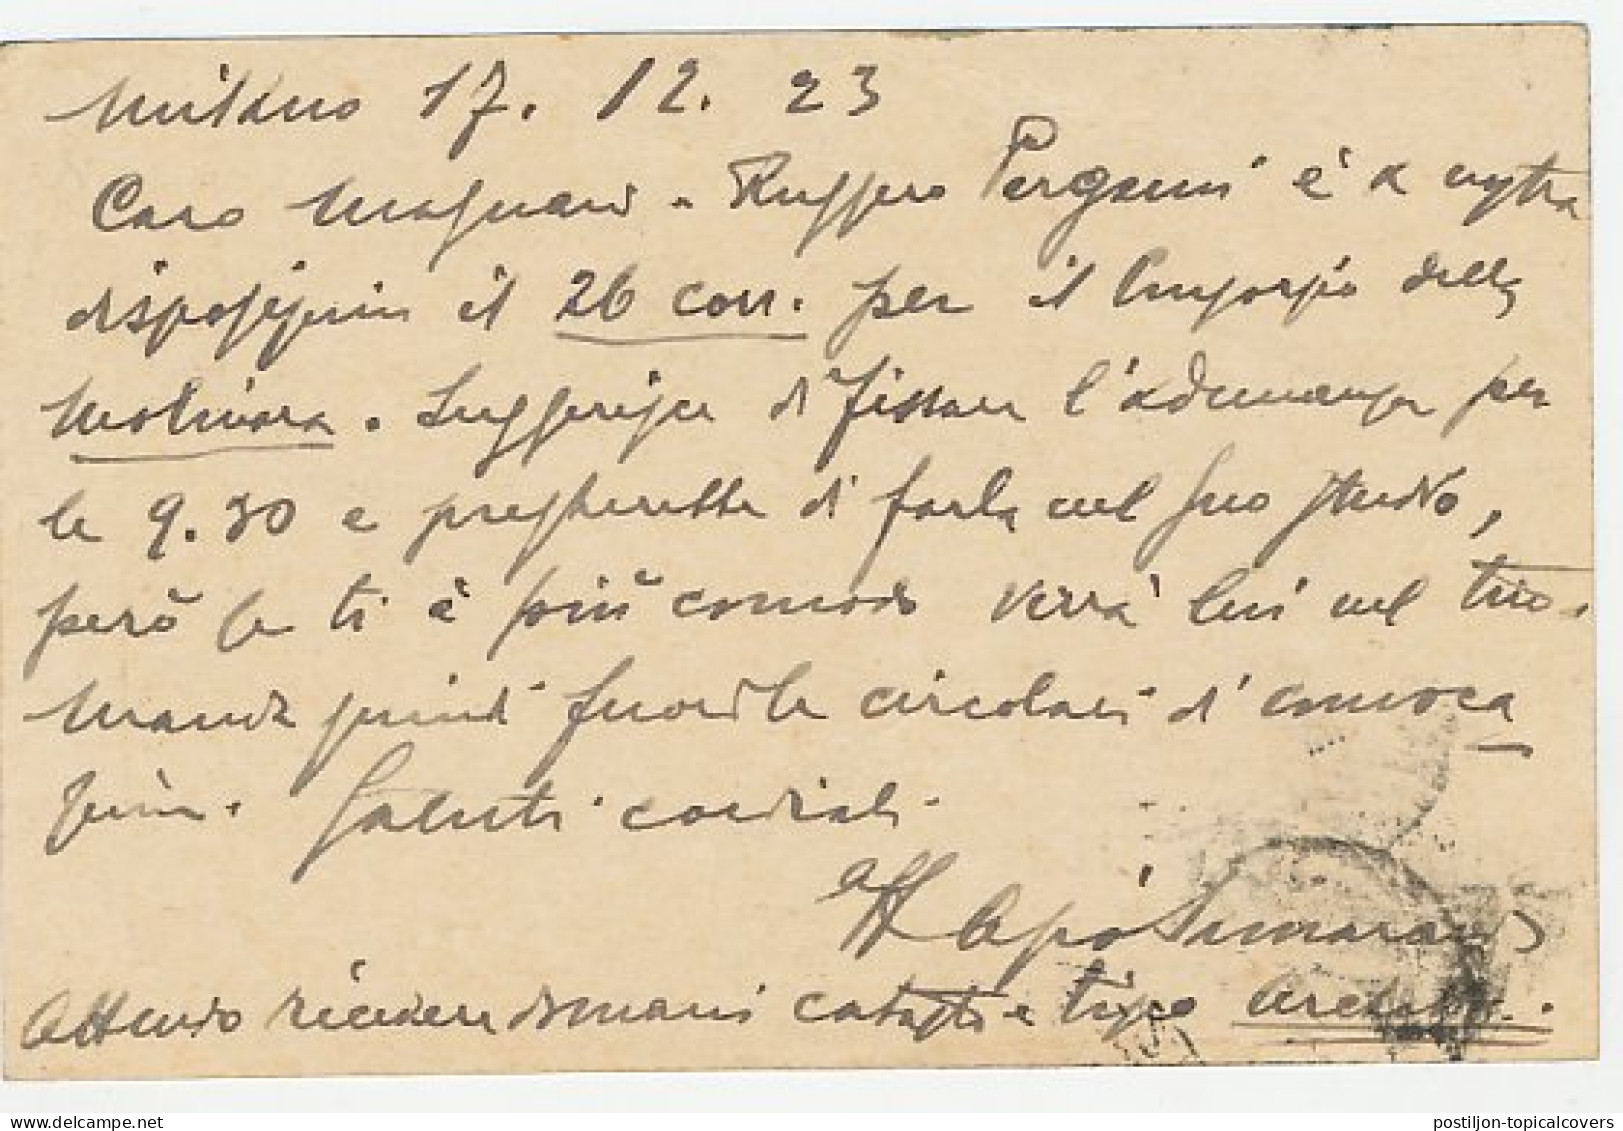 Milano 17. 12. 23
Caro Magnani. Ruggero Pergami è a vostra
disposizione il 26 corr. per il Consorzio della
Molinara. Suggerisce di fissare l'adunanza per
le 9.30 e preghereste di farla nel suo studio,
però se ti è più comodo verrà lui nel tuo.
Manda quindi fuori le circolari di convoca
zione. Saluti cordiali
aff
Attendo ricevere domani catasto e tipo
postiljon-topicalcovers
postiljon-topicalcovers.com